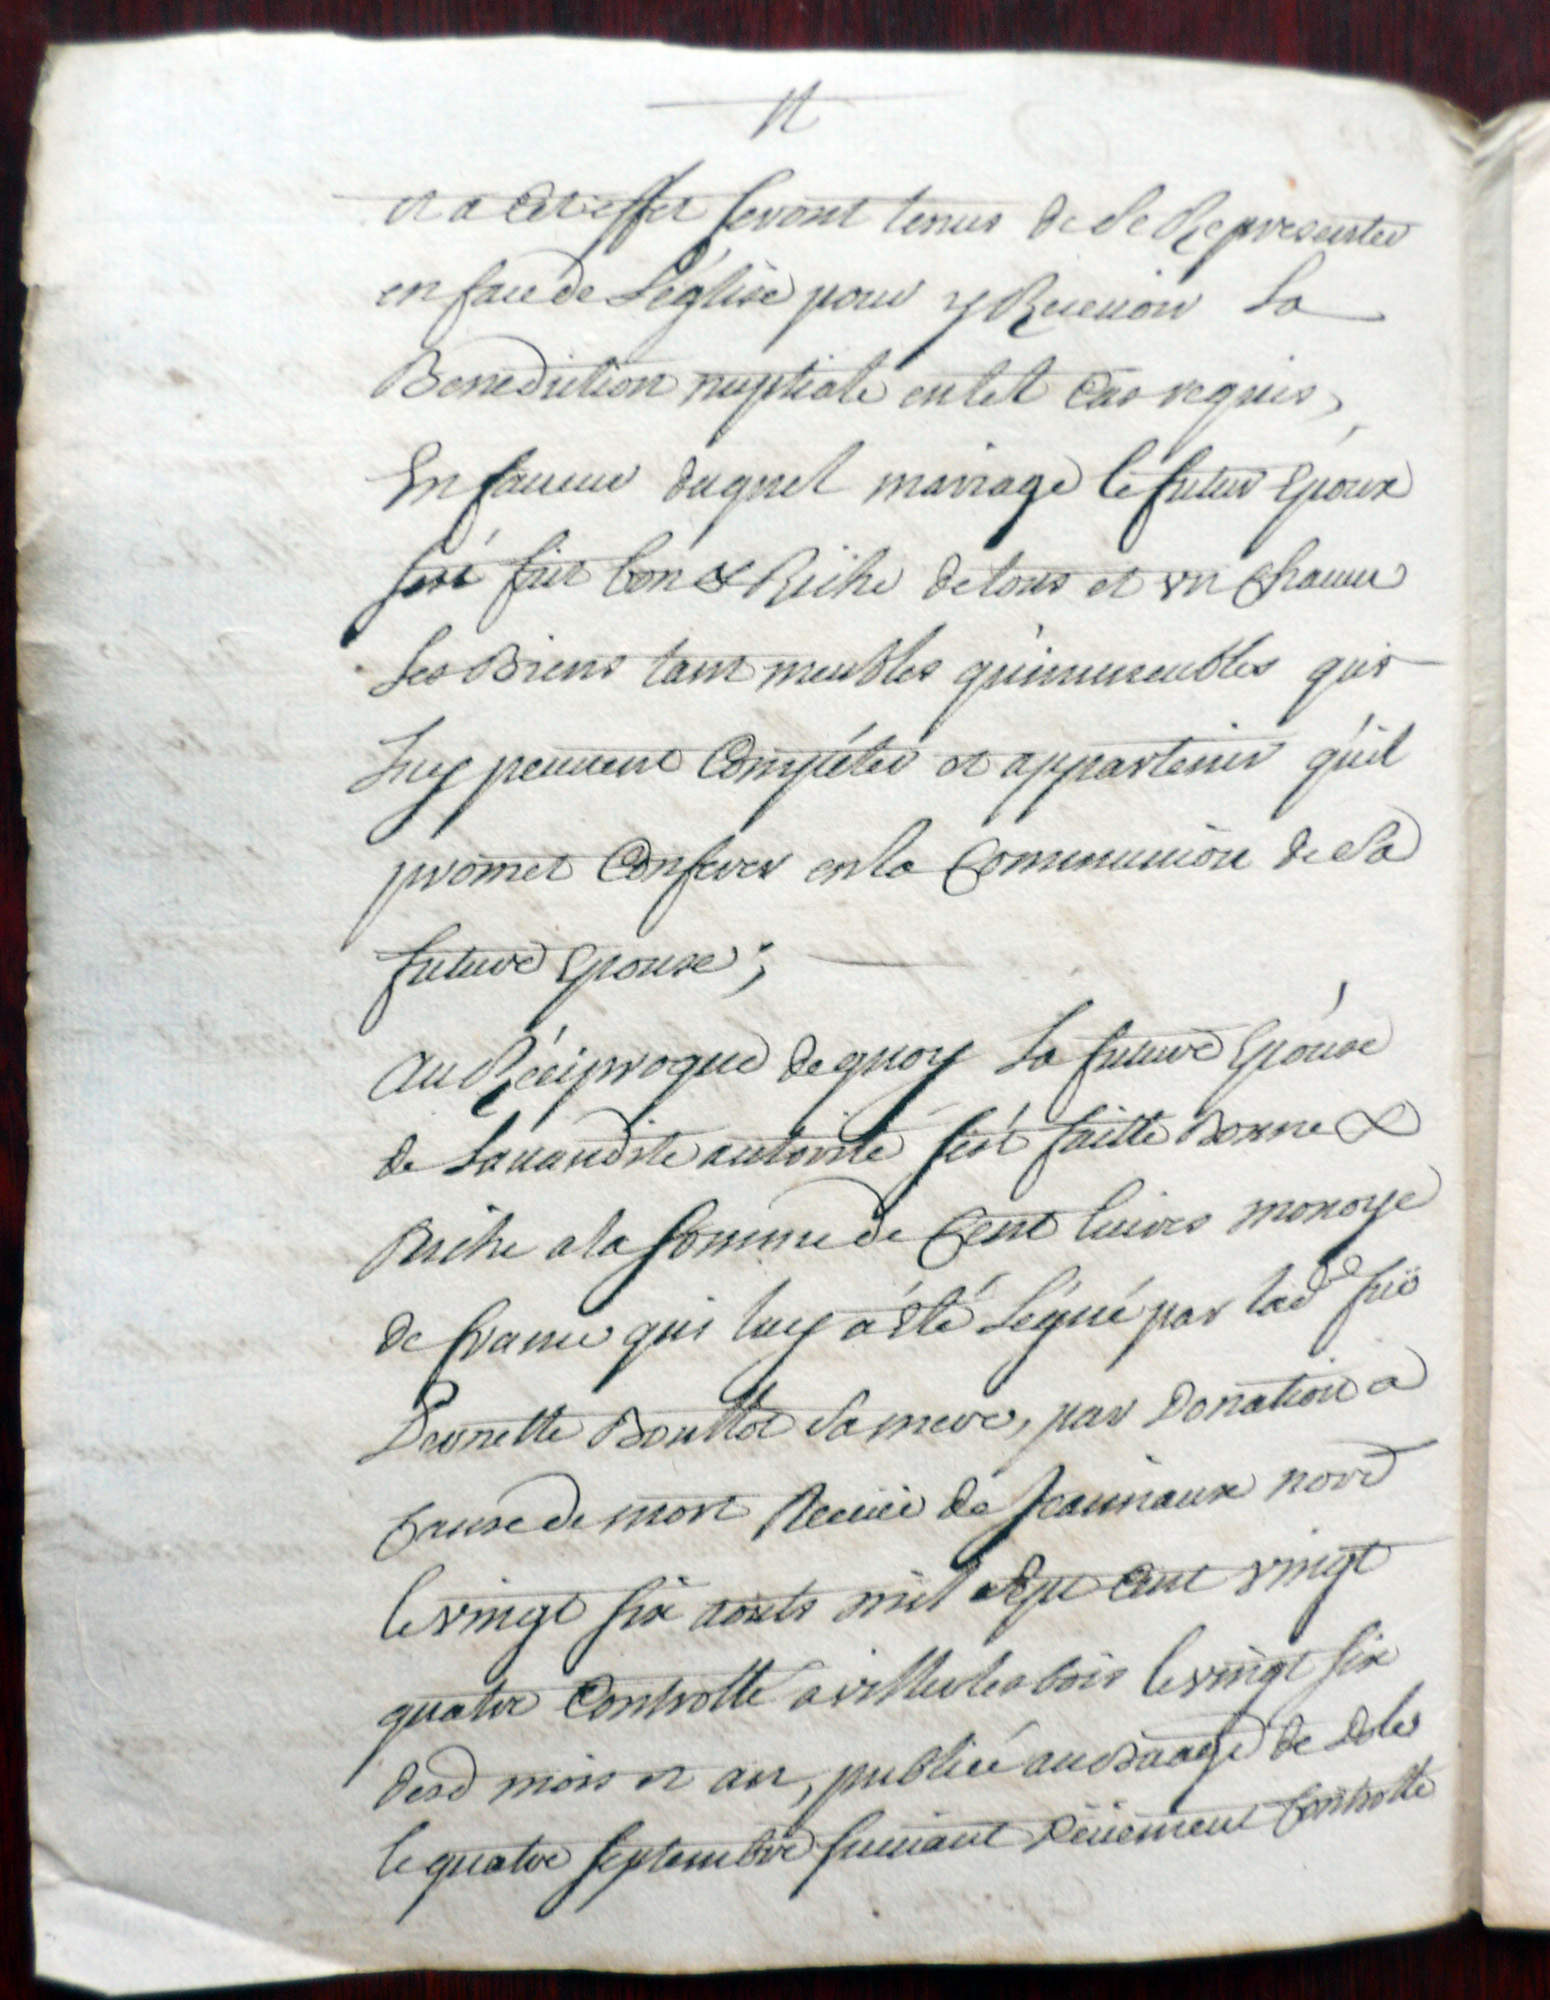 et a Cet effet seront tenus de se Representer
en face de L'église pour y Recevoir La
Benediction nuptiale en tel Cas requis,
En faveur duquel mariage le futur Epoux
s'est fait bon & Riche de tous et un chacun
ses Biens tant meubles qu'immeubles qui
Luy peuvent Compéter et appartenir qu'il
promet Conferer en la Communion de sa
future Epouse;
au Réciproque de quoy La future Epouse
de Lavandite autorité s'est faitte Bonne &
Riche a la somme de Cent livres monoye
de france qui luy a été Légué par lad^e fuë
Pernette Boullot sa mere, par Donation a
Cause de mort Receüe de Jeannaux nor^e
le vingt six aouts mil sept cent vingt
quatre Controllé a villerlesbois le vingt six
desd mois et an, publiée au Baage de Dole
le quatre septembre suivant Düement Controllé